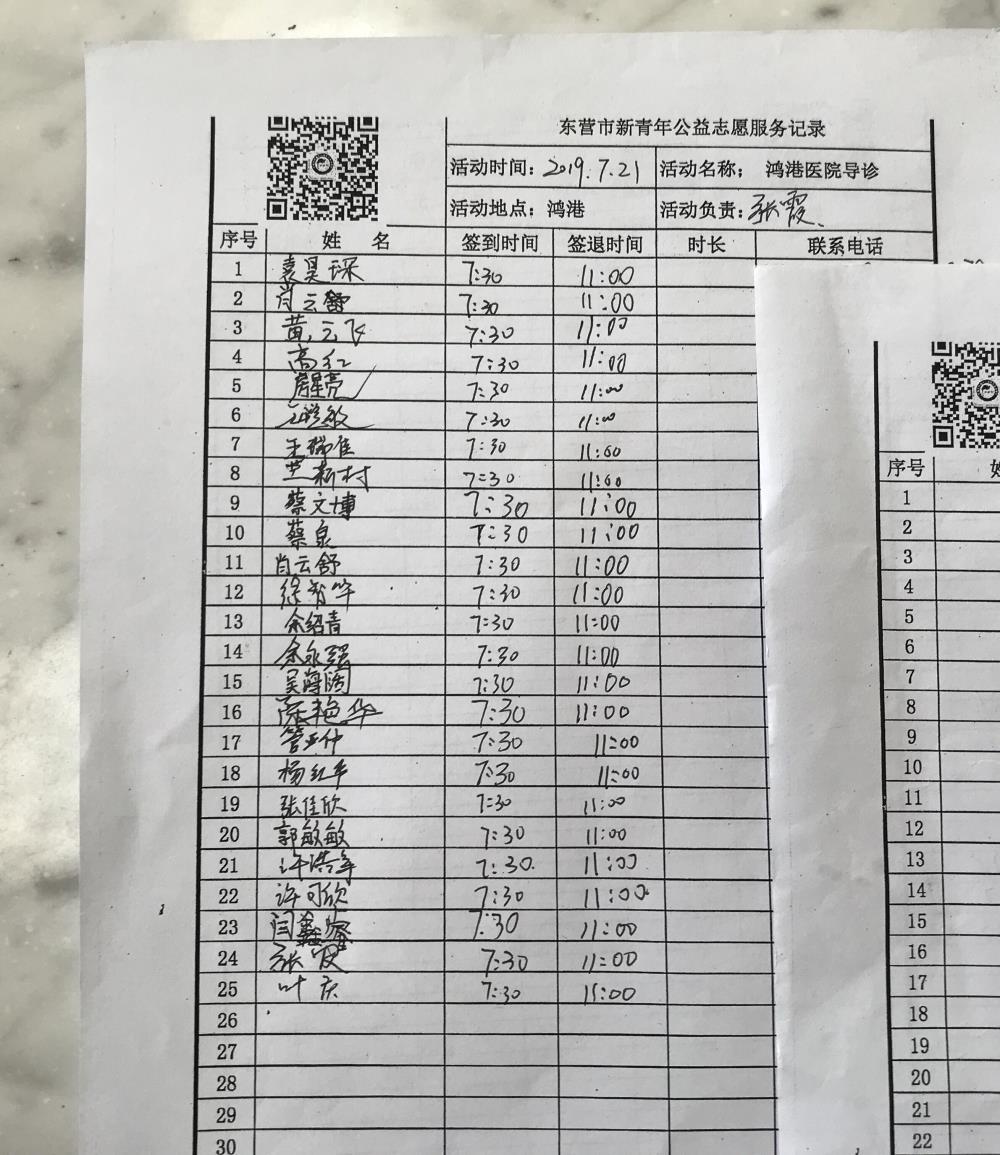 东营市新青年公益志愿服务记录
活动时间：2019.7.21 活动名称； 鸿港医院导诊
活动地点：鸿港 活动负责：张霞
序号 姓 名 签到时间 签退时间 时长 联系电话
1 袁昊琛 7:30 11:00
2 肖云舒 7:30 11:00
3 黄云飞 7:30 11:00
4 高红 7:30 11:00
5 7:30 11:00
6 7:30 11:00
7 王瑞佳 7:30 11:00
8 兰新村 7:30 11:00
9 蔡文博 7:30 11:00
10 蔡泉 7:30 11:00
11 肖云舒 7:30 11:00
12 徐智华 7:30 11:00
13 余绍青 7:30 11:00
14 余永强 7:30 11:00
15 吴海阔 7:30 11:00
16 陈艳华 7:30 11:00
17 7:30 11:00
18 杨红军 7:30 11:00
19 张佳欣 7:30 11:00
20 郭敏敏 7:30 11:00
21 许浩年 7:30. 11:00
22 许可欣 7:30 11:00
23 闫鑫睿 7:30 11:00
24 张霞 7:30 11:00
25 叶庆 7:30 11:00
26
27
28
29
30
序号 姓
1
2
3
4
5
6
7
8
9
10
11
12
13
14
15
16
17
18
19
20
21
22